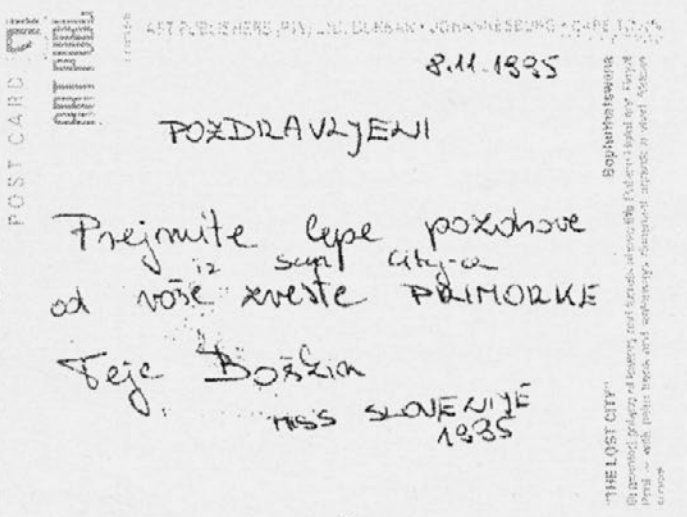 ART PUBLISHERS (PTY) LTD. DURBAN • JOHANNESBURG • CAPE TOWN
POST CARD
ART PUBL
8.11.1995
POZDRAVLJENI
Prejmite lepe pozdrave
iz Sun City-a
od vaše zveste PRIMORKE
Teje Boškin
MISS SLOVENIJE
1995
Bophuthatswana
"THE LOST CITY"